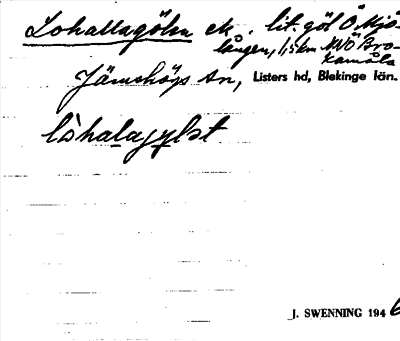 Lohallagölen m. lit. göl Ö Mjö-
lången, 1,5 km NNÖ Bro-
kamåla
Jämshögs sn, Listers hd, Blekinge län.
lòhalagylət
J. SWENNING 1946